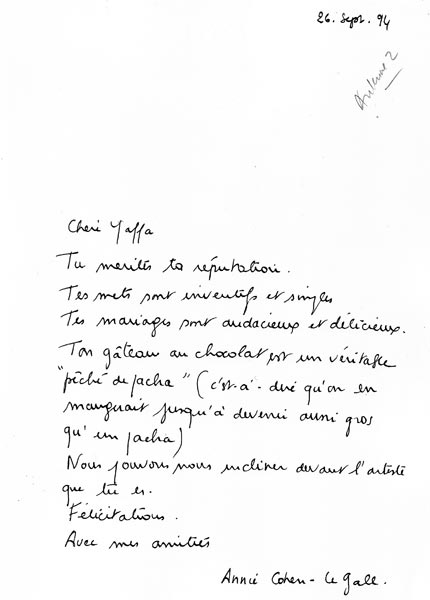 26. Sept. 94
Antenne 2
Cheri Yaffa
Tu merites ta réputation.
Tes mets sont inventifs et simples
Tes mariages sont audacieux et délicieux.
Ton gâteau au chocolat est un véritable
"pêché de pacha" (c'est-à-dire qu'on en
mangerait jusqu'à devenir aussi gros
qu'un pacha)
Nous pouvons nous incliner devant l'artiste
que tu es.
Félicitations.
Avec mes amitiés
Annie Cohen-Le Gall.